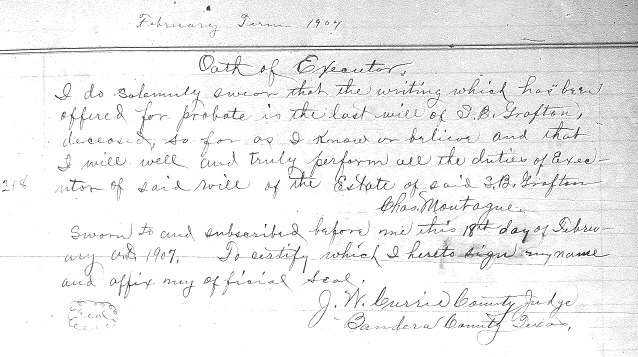 February Term 1907
Oath of Executor.
I do solemnly swear that the writing which has been
offered for probate is the last will of S.B. Grafton,
deceased, so far as I know or believe and that
I will well and truly perform all the duties of Exec-
218
utor of said will of the Estate of said S.B. Grafton
Chas. Montague.
Sworn to and subscribed before me this 18th day of Febru-
ary AD 1907. To certify which I hereto sign my name
and affix my official seal.
Seal
J. W. Currie County Judge
Bandera County Texas.